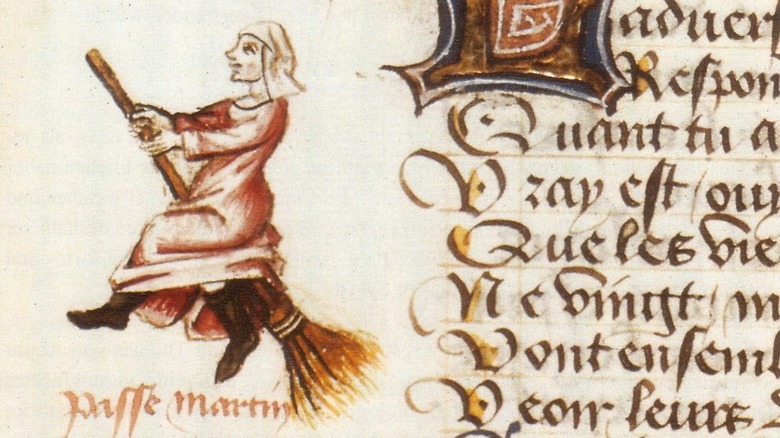 L aduers
Respon
Quant tu a
Vray est / ouy
Que les vie
Ne vingt / m
Vont ensembl
Veoir leurs
passe martin